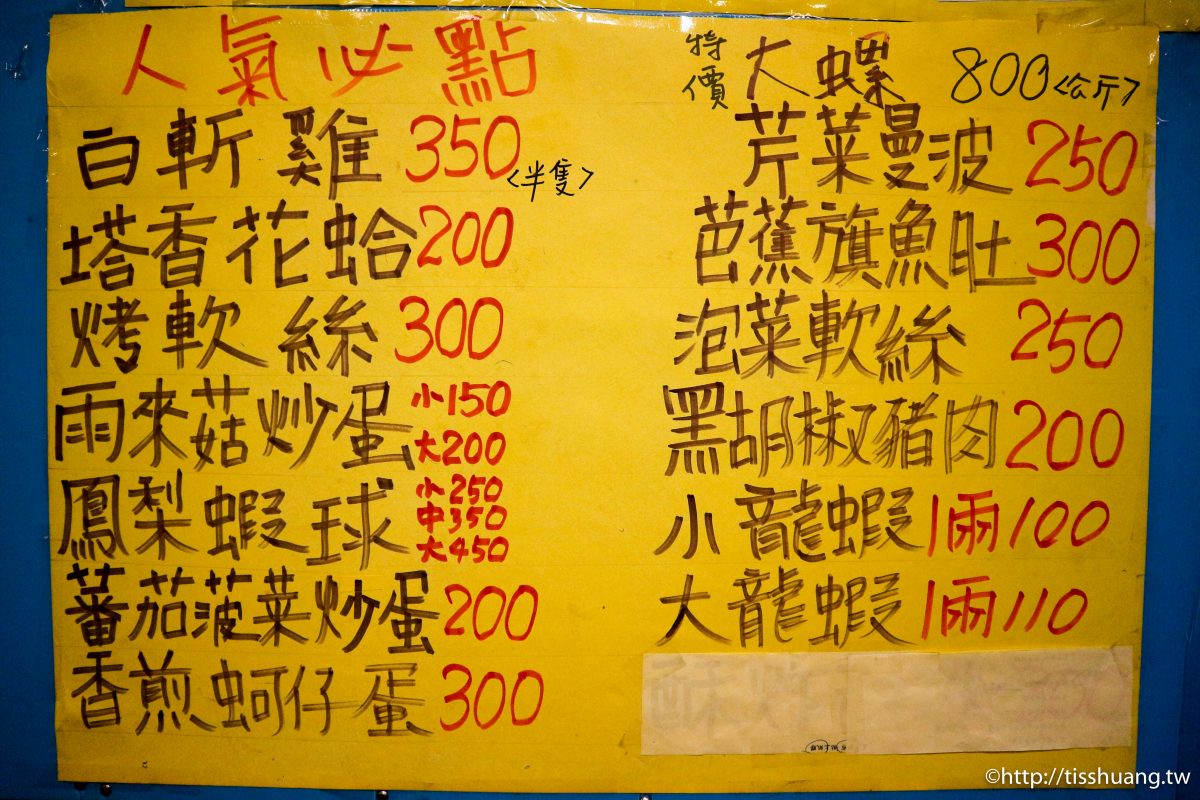 人氣必點
白斬雞 350 <半隻>
塔香花蛤 200
烤軟絲 300
雨來菇炒蛋 小150
大200
鳳梨蝦球 小250
中350
大450
蕃茄菠菜炒蛋 200
香煎蚵仔蛋 300
特價 大螺 800<公斤>
芹菜曼波 250
芭蕉旗魚肚 300
泡菜軟絲 250
黑胡椒豬肉 200
小龍蝦 1兩100
大龍蝦 1兩110
©http://tisshuang.tw